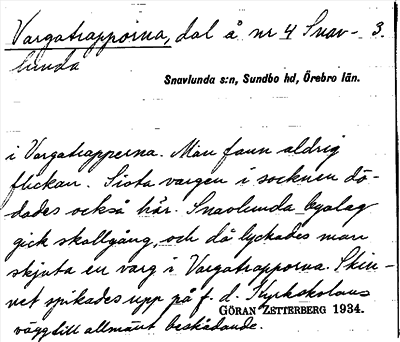 Vargatrapporna, dal å nr 4 Snav- 3.
lunda
Snavlunda s:n, Sundbo hd, Örebro län.
i Vargatrapperna. Man fann aldrig
flickan. Sista vargen i socknen dö-
dades också här. Snavlunda byalag
gick skallgång, och då lyckades man
skjuta en varg i Vargatrapporna. Skin-
net spikades upp på f. d. Kyrkskolans
GÖRAN ZETTERBERG 1934.
vägg till allmänt beskådande.